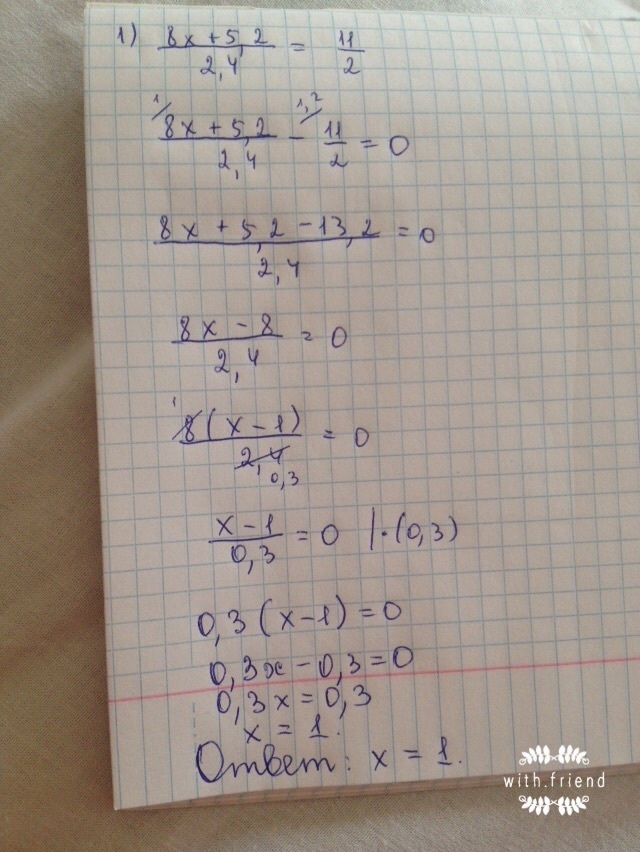 1) (8x + 5,2)/2,4 = 11/2
1/ (8x + 5,2)/2,4 - 1,2/ 11/2 = 0
(8x + 5,2 - 13,2)/2,4 = 0
(8x - 8)/2,4 = 0
1 8(x - 1)/2,4 0,3 = 0
(x - 1)/0,3 = 0 |·(0,3)
0,3(x-1) = 0
0,3x - 0,3 = 0
0,3x = 0,3
x = 1.
Ответ: x = 1.
with.friend